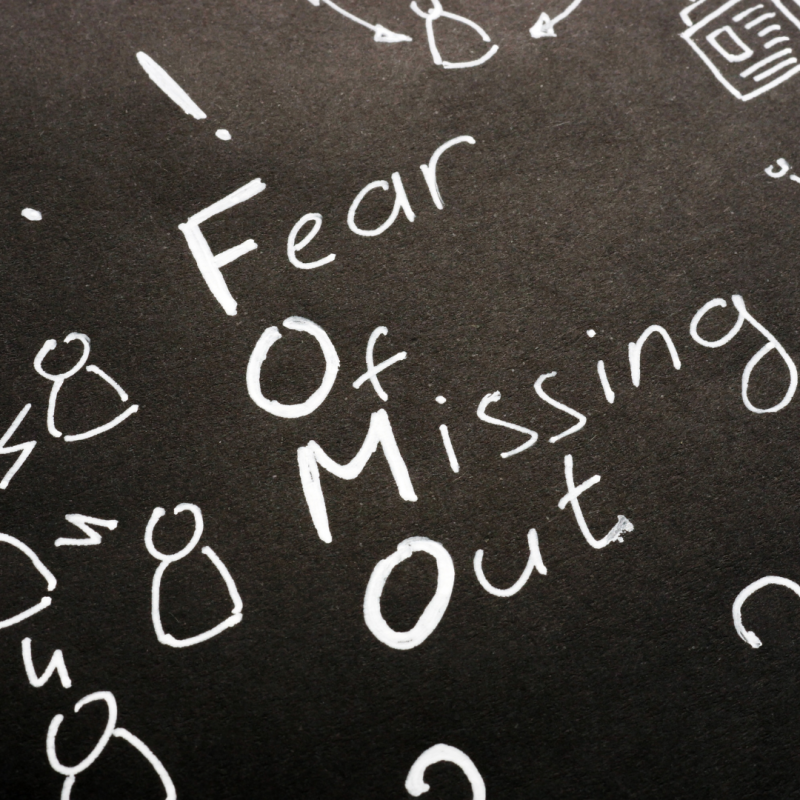 !
Fear
Of
Missing
Out
?
?